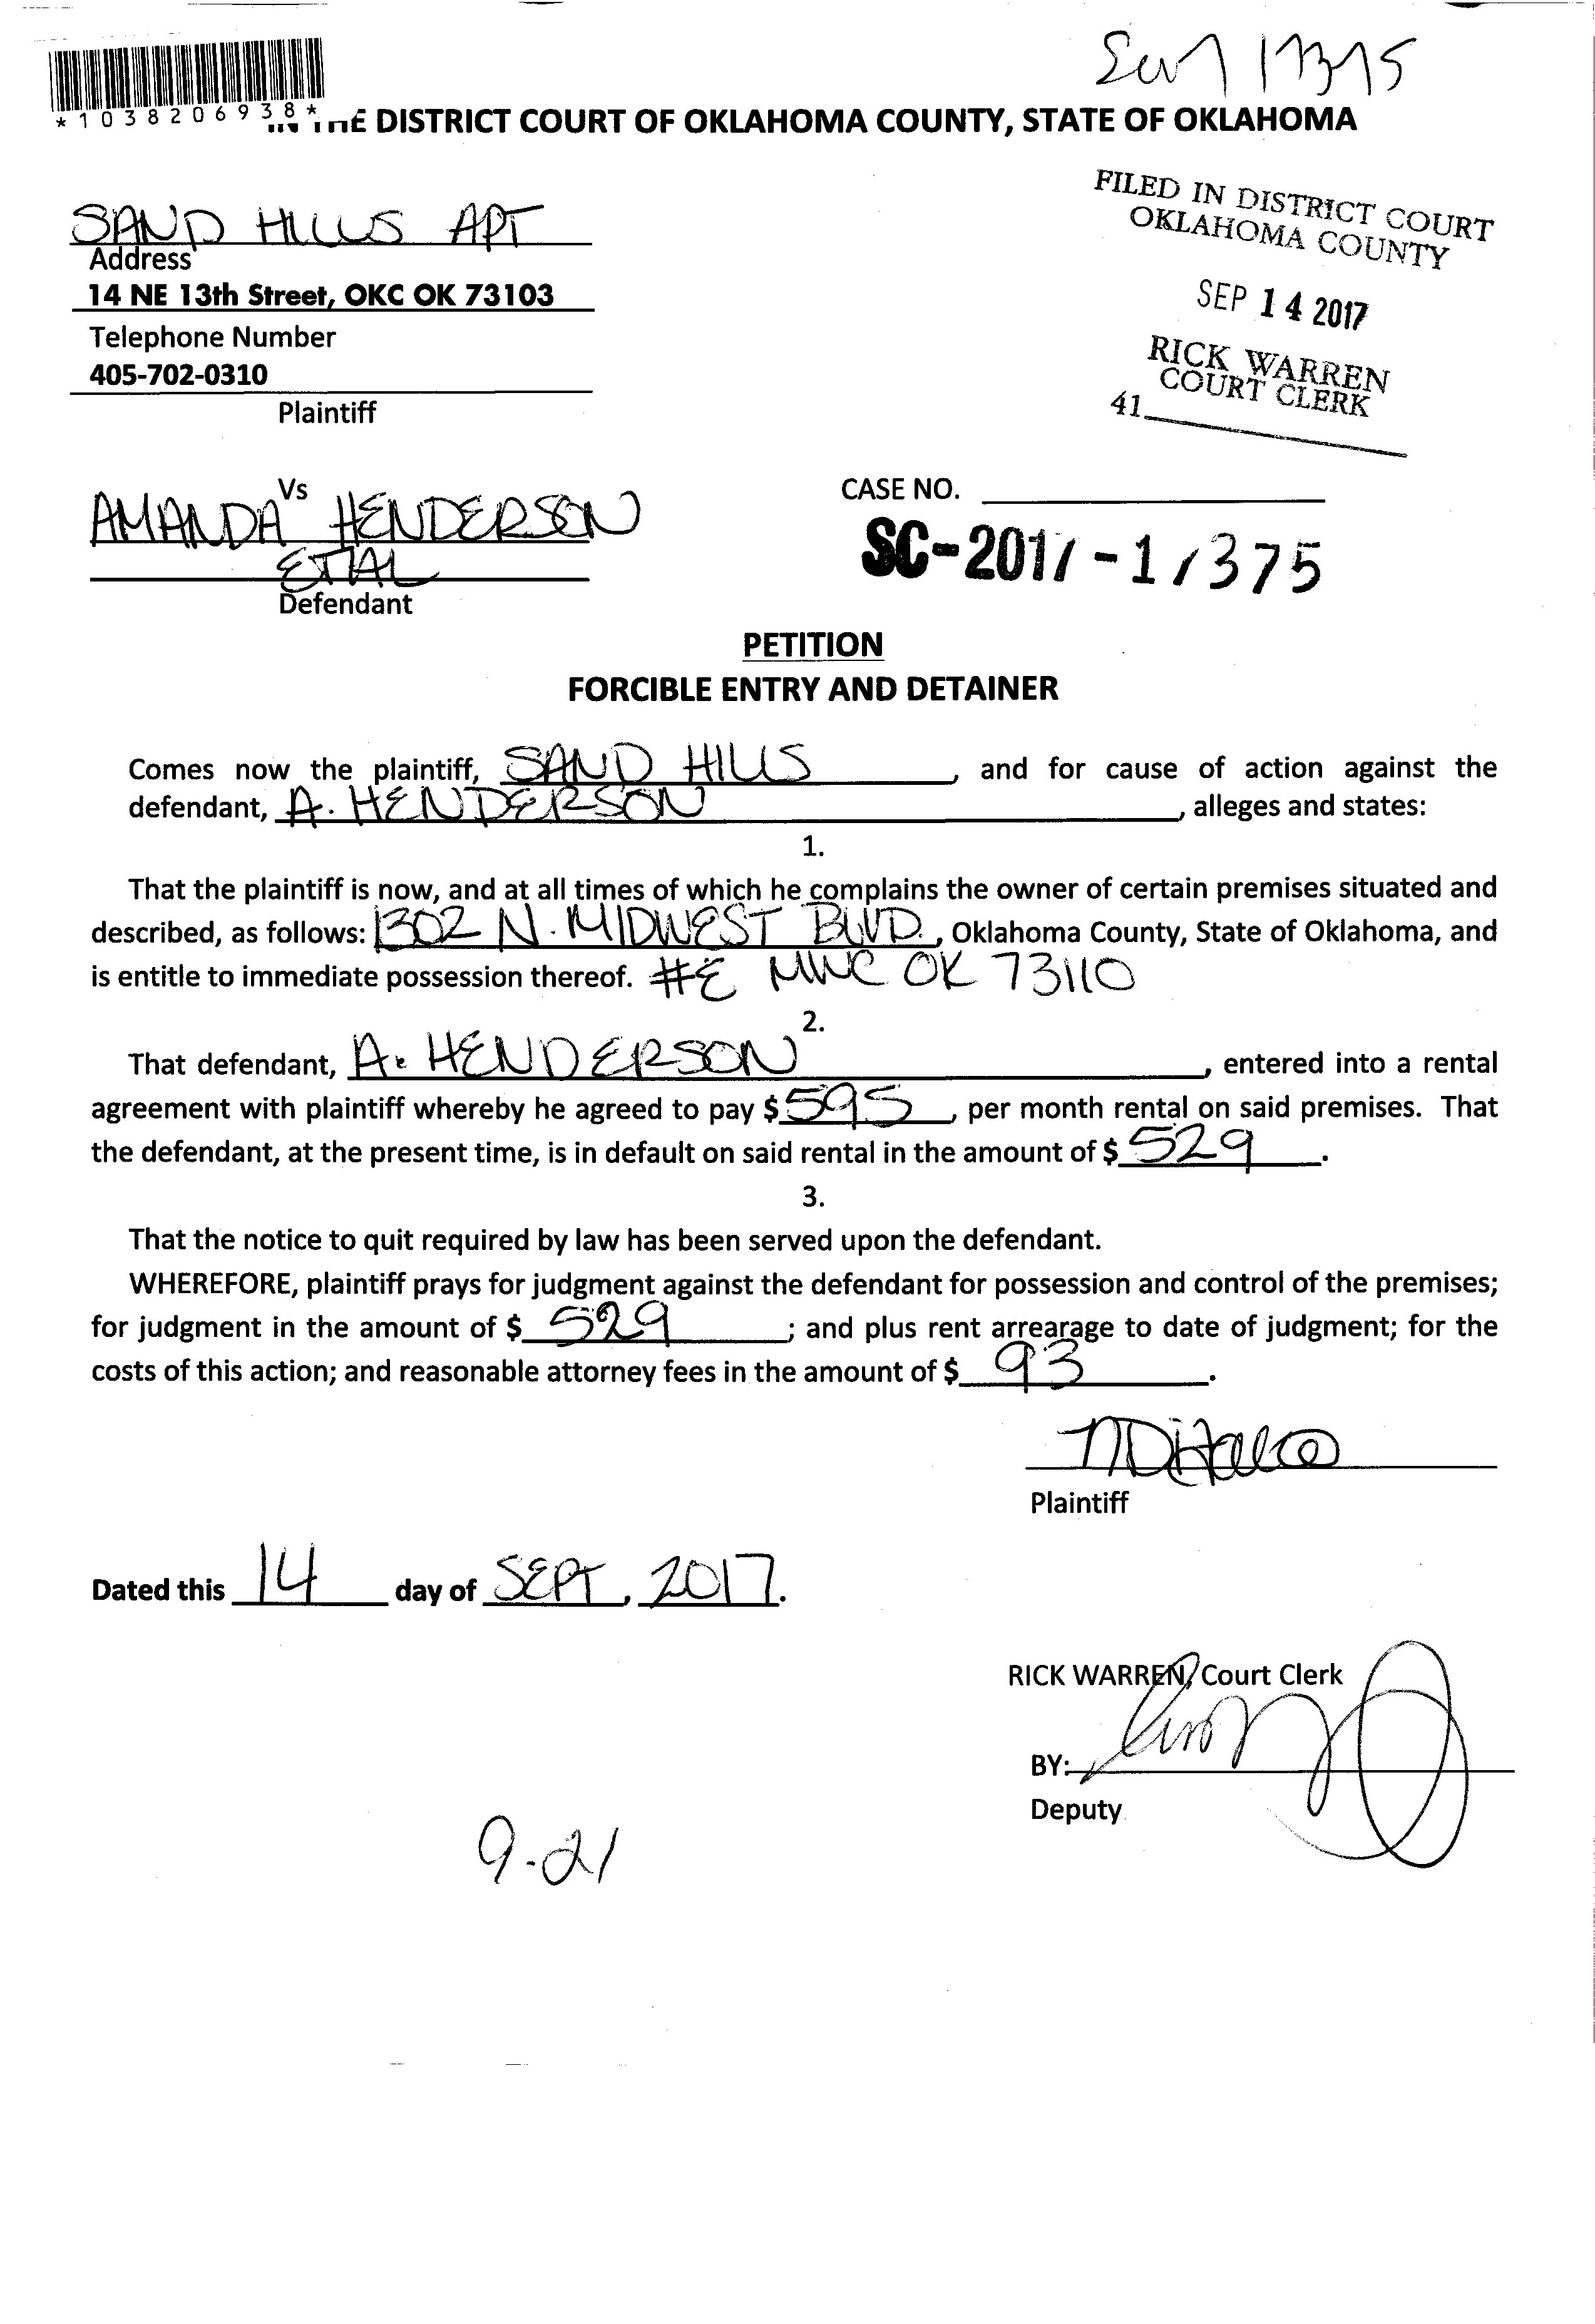 17375
*1038206938*
THE DISTRICT COURT OF OKLAHOMA COUNTY, STATE OF OKLAHOMA
FILED IN DISTRICT COURT
OKLAHOMA COUNTY
SEP 14 2017
RICK WARREN
COURT CLERK
41
SAND HILLS APT
Address
14 NE 13th Street, OKC OK 73103
Telephone Number
405-702-0310
Plaintiff
Vs
AMANDA HENDERSON
ETAL
Defendant
CASE NO.
SC-2017-17375
PETITION
FORCIBLE ENTRY AND DETAINER
Comes now the plaintiff, SAND HILLS, and for cause of action against the
defendant, A. HENDERSON, alleges and states:
1.
That the plaintiff is now, and at all times of which he complains the owner of certain premises situated and
described, as follows: 1302 N. MIDWEST BLVD., Oklahoma County, State of Oklahoma, and
is entitle to immediate possession thereof. #E MWC OK 73110
2.
That defendant, A. HENDERSON, entered into a rental
agreement with plaintiff whereby he agreed to pay $595, per month rental on said premises. That
the defendant, at the present time, is in default on said rental in the amount of $529.
3.
That the notice to quit required by law has been served upon the defendant.
WHEREFORE, plaintiff prays for judgment against the defendant for possession and control of the premises;
for judgment in the amount of $529; and plus rent arrearage to date of judgment; for the
costs of this action; and reasonable attorney fees in the amount of $93.
Plaintiff
Dated this 14 day of SEPT, 2017.
RICK WARREN, Court Clerk
BY:
Deputy
9-21